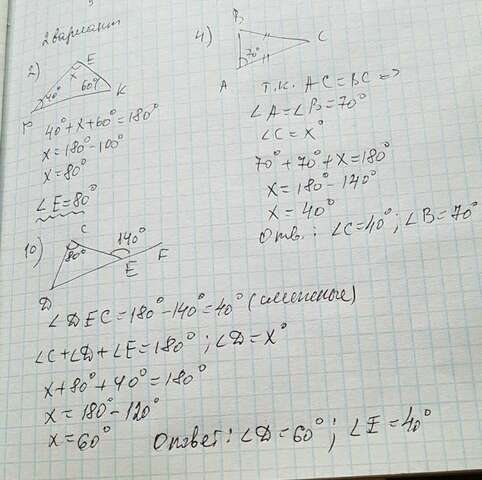 2 вариант
2)
E
x
40°
60°
P
K
40°+x+60°=180°
x=180°-100°
x=80°
∠E=80°
4)
B
C
70°
A
т.к. AC=BC =>
∠A=∠B=70°
∠C=x°
70°+70°+x=180°
x=180°-140°
x=40°
Отв.: ∠C=40°; ∠B=70°
10)
C
80°
140°
F
E
D
∠DEC=180°-140°=40° (смежные)
∠C+∠D+∠E=180°; ∠D=x°
x+80°+40°=180°
x=180°-120°
x=60°
Ответ: ∠D=60°; ∠E=40°